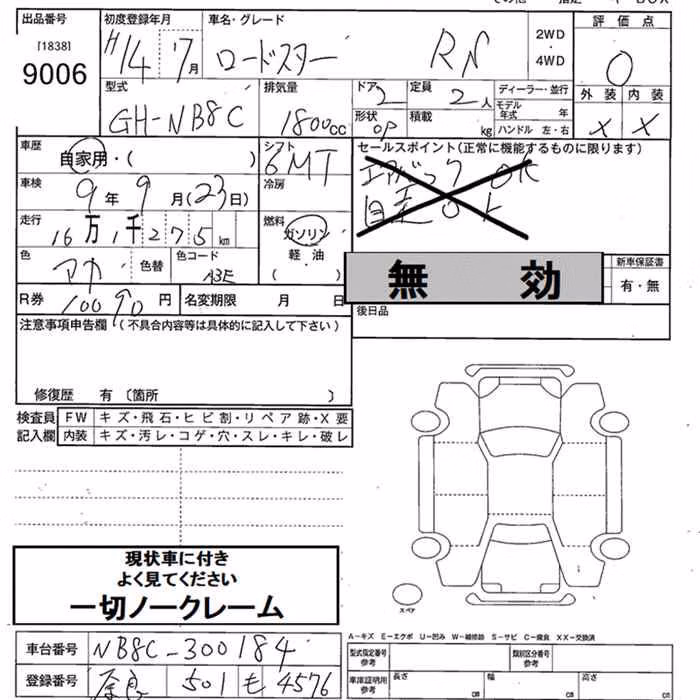 出品番号 初度登録年月 車名・グレード 2WD ・ 4WD 評価点
[1838]
9006 H14 7月 ロードスター RS 0
型式 排気量 ドア 定員 ディーラー・並行 外装 内装
GH-NB8C 1800cc 2 2人 モデル年式 年 X X
形状 OP 積載 kg ハンドル 左・右
車歴 自家用・( ) シフト 6MT セールスポイント(正常に機能するものに限ります)
車検 9年9月(23日) 冷房 エアバック OK
走行 16万1千275km 燃料 ガソリン 軽油 ( )
色 アカ 色替 色コード A3E
無効 新車保証書 有・無
R券 10090円 名変期限 月 日
後日品
注意事項申告欄(不具合内容等は具体的に記入して下さい)
修復歴 有〔箇所 〕
検査員 FW キズ・飛石・ヒビ割・リペア跡・X要
記入欄 内装 キズ・汚レ・コゲ・穴・スレ・キレ・破レ
現状車に付き
よく見てください
一切ノークレーム
スペア
A-キズ E-エクボ U-凹み W-補修跡 S-サビ C-腐食 XX-交換済
車台番号 NB8C-300184 型式指定番号 参考 類別区分番号 参考
登録番号 奈良 501 も 4576 車庫証明用 参考 長さ cm 幅 cm 高さ cm